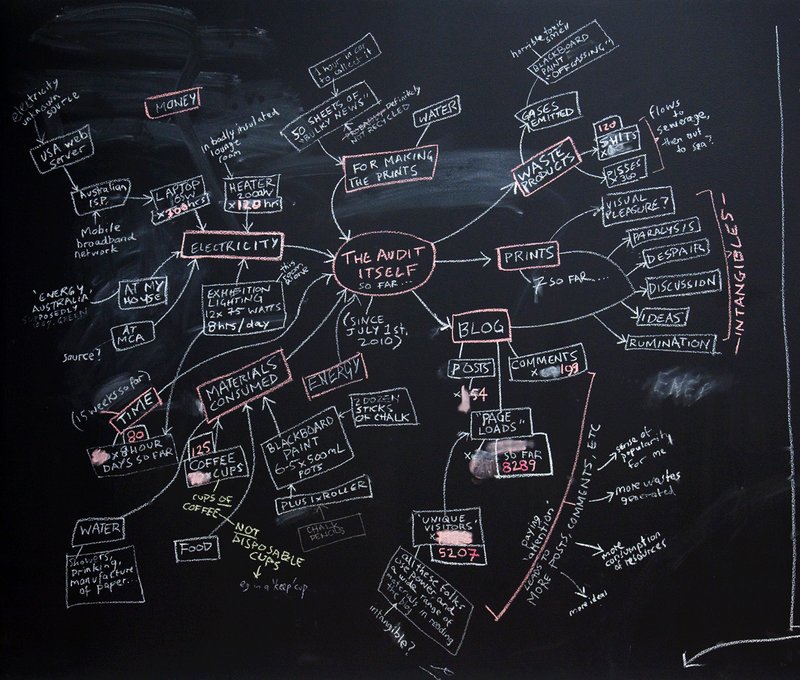 MONEY
electricity
unknown
source
USA web
server
Australian
I.S.P.
Mobile
broadband
network
LAPTOP
hrs
in badly insulated
lounge
room
HEATER
2000W
x 120 hrs
ELECTRICITY
'ENERGY
AUSTRALIA'
SUPPOSEDLY
GREEN
AT MY
HOUSE
AT
MCA
source?
EXHIBITION
LIGHTING
12x 75 WATTS
8hrs/day
this
room
alone
1 hour in car
to collect it
50 SHEETS OF
"BULKY NEWS"
Definitely
NOT RECYCLED
WATER
FOR MAKING
THE PRINTS
THE AUDIT
ITSELF
SO FAR...
(SINCE
JULY 1st,
2010)
horrible toxic
smell
BLACKBOARD
PAINT
"OFFGASSING"
GASES
EMITTED
WASTE
PRODUCTS
120
SHITS
x
PISSES
x 360
flows
to
sewerage,
then out
to sea?
PRINTS
7 SO FAR...
VISUAL
PLEASURE?
PARALYSIS
DESPAIR
DISCUSSION
IDEAS
RUMINATION
INTANGIBLES
BLOG
POSTS
x 154
COMMENTS
x 199
"PAGE
LOADS"
x
SO FAR
8289
'UNIQUE
VISITORS'
x
5207
All these folks
use power and
a wide range of
materials in reading
the blog
intangible?
"paying
attention"
LEADS TO
MORE POSTS, COMMENTS, ETC
sense of
popularity
for me
more wastes
generated
more
consumption
of resources
more ideas
ENER
(15 weeks so far)
TIME
80
x 8 HOUR
DAYS SO FAR
MATERIALS
CONSUMED
ENERGY
125
COFFEE
CUPS
CUPS OF
COFFEE
NOT
DISPOSABLE
CUPS
eg in a 'keep' cup
BLACKBOARD
PAINT
6.5 x 500mL
POTS
2 DOZEN
STICKS
OF CHALK
PLUS 1 x ROLLER
CHALK
PENCILS
WATER
Showers,
Drinking,
manufacture
of paper...
FOOD